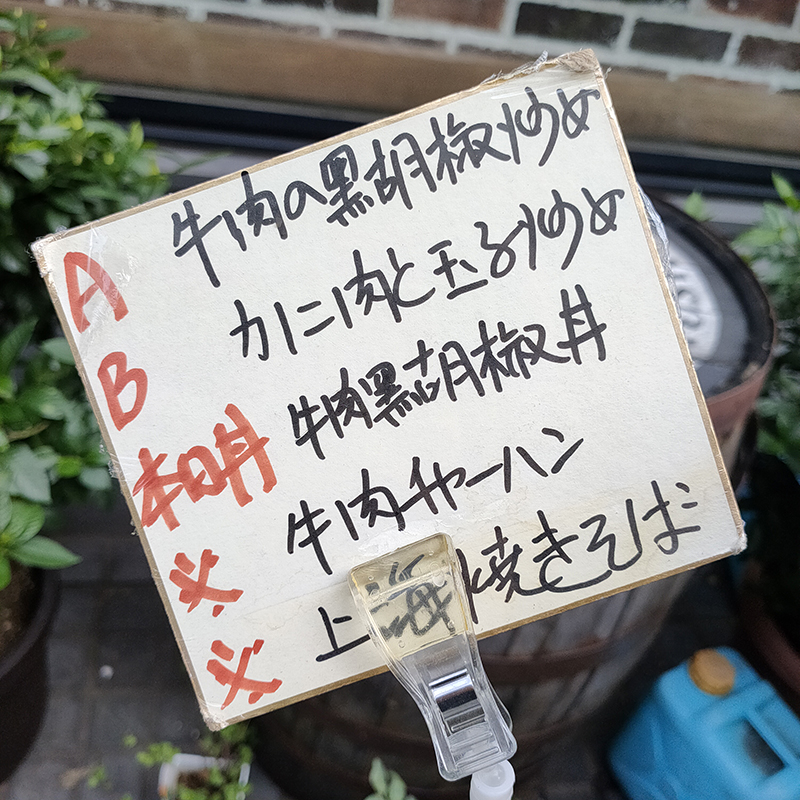 A 牛肉の黒胡椒炒め
B カニ肉と玉子炒め
本日丼 牛肉黒胡椒丼
※ 牛肉チャーハン
※ 上海焼きそば